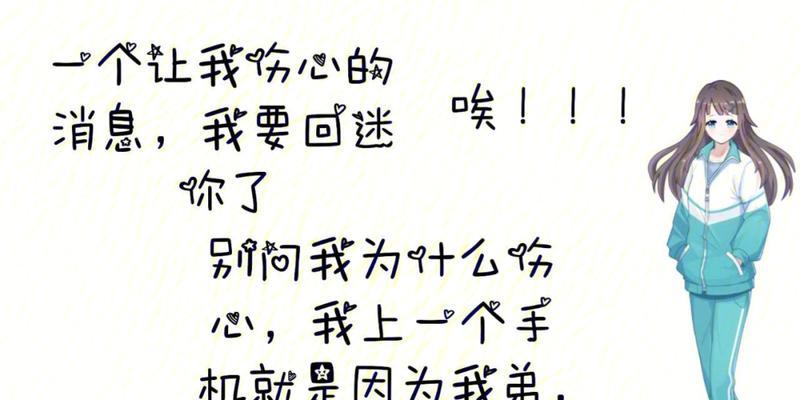 一个让我伤心的
消息，我要回迷
你了
唉！！！
别问我为什么伤
心，我上一个手
机就是因为我弟，